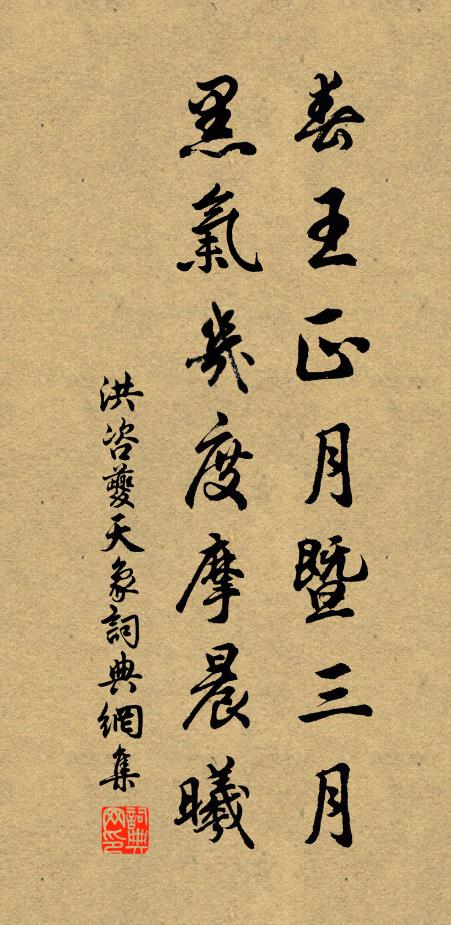 春王正月暨三月
黑氣幾度摩晨曦
洪咨夔天象詞典網集
詞典網印